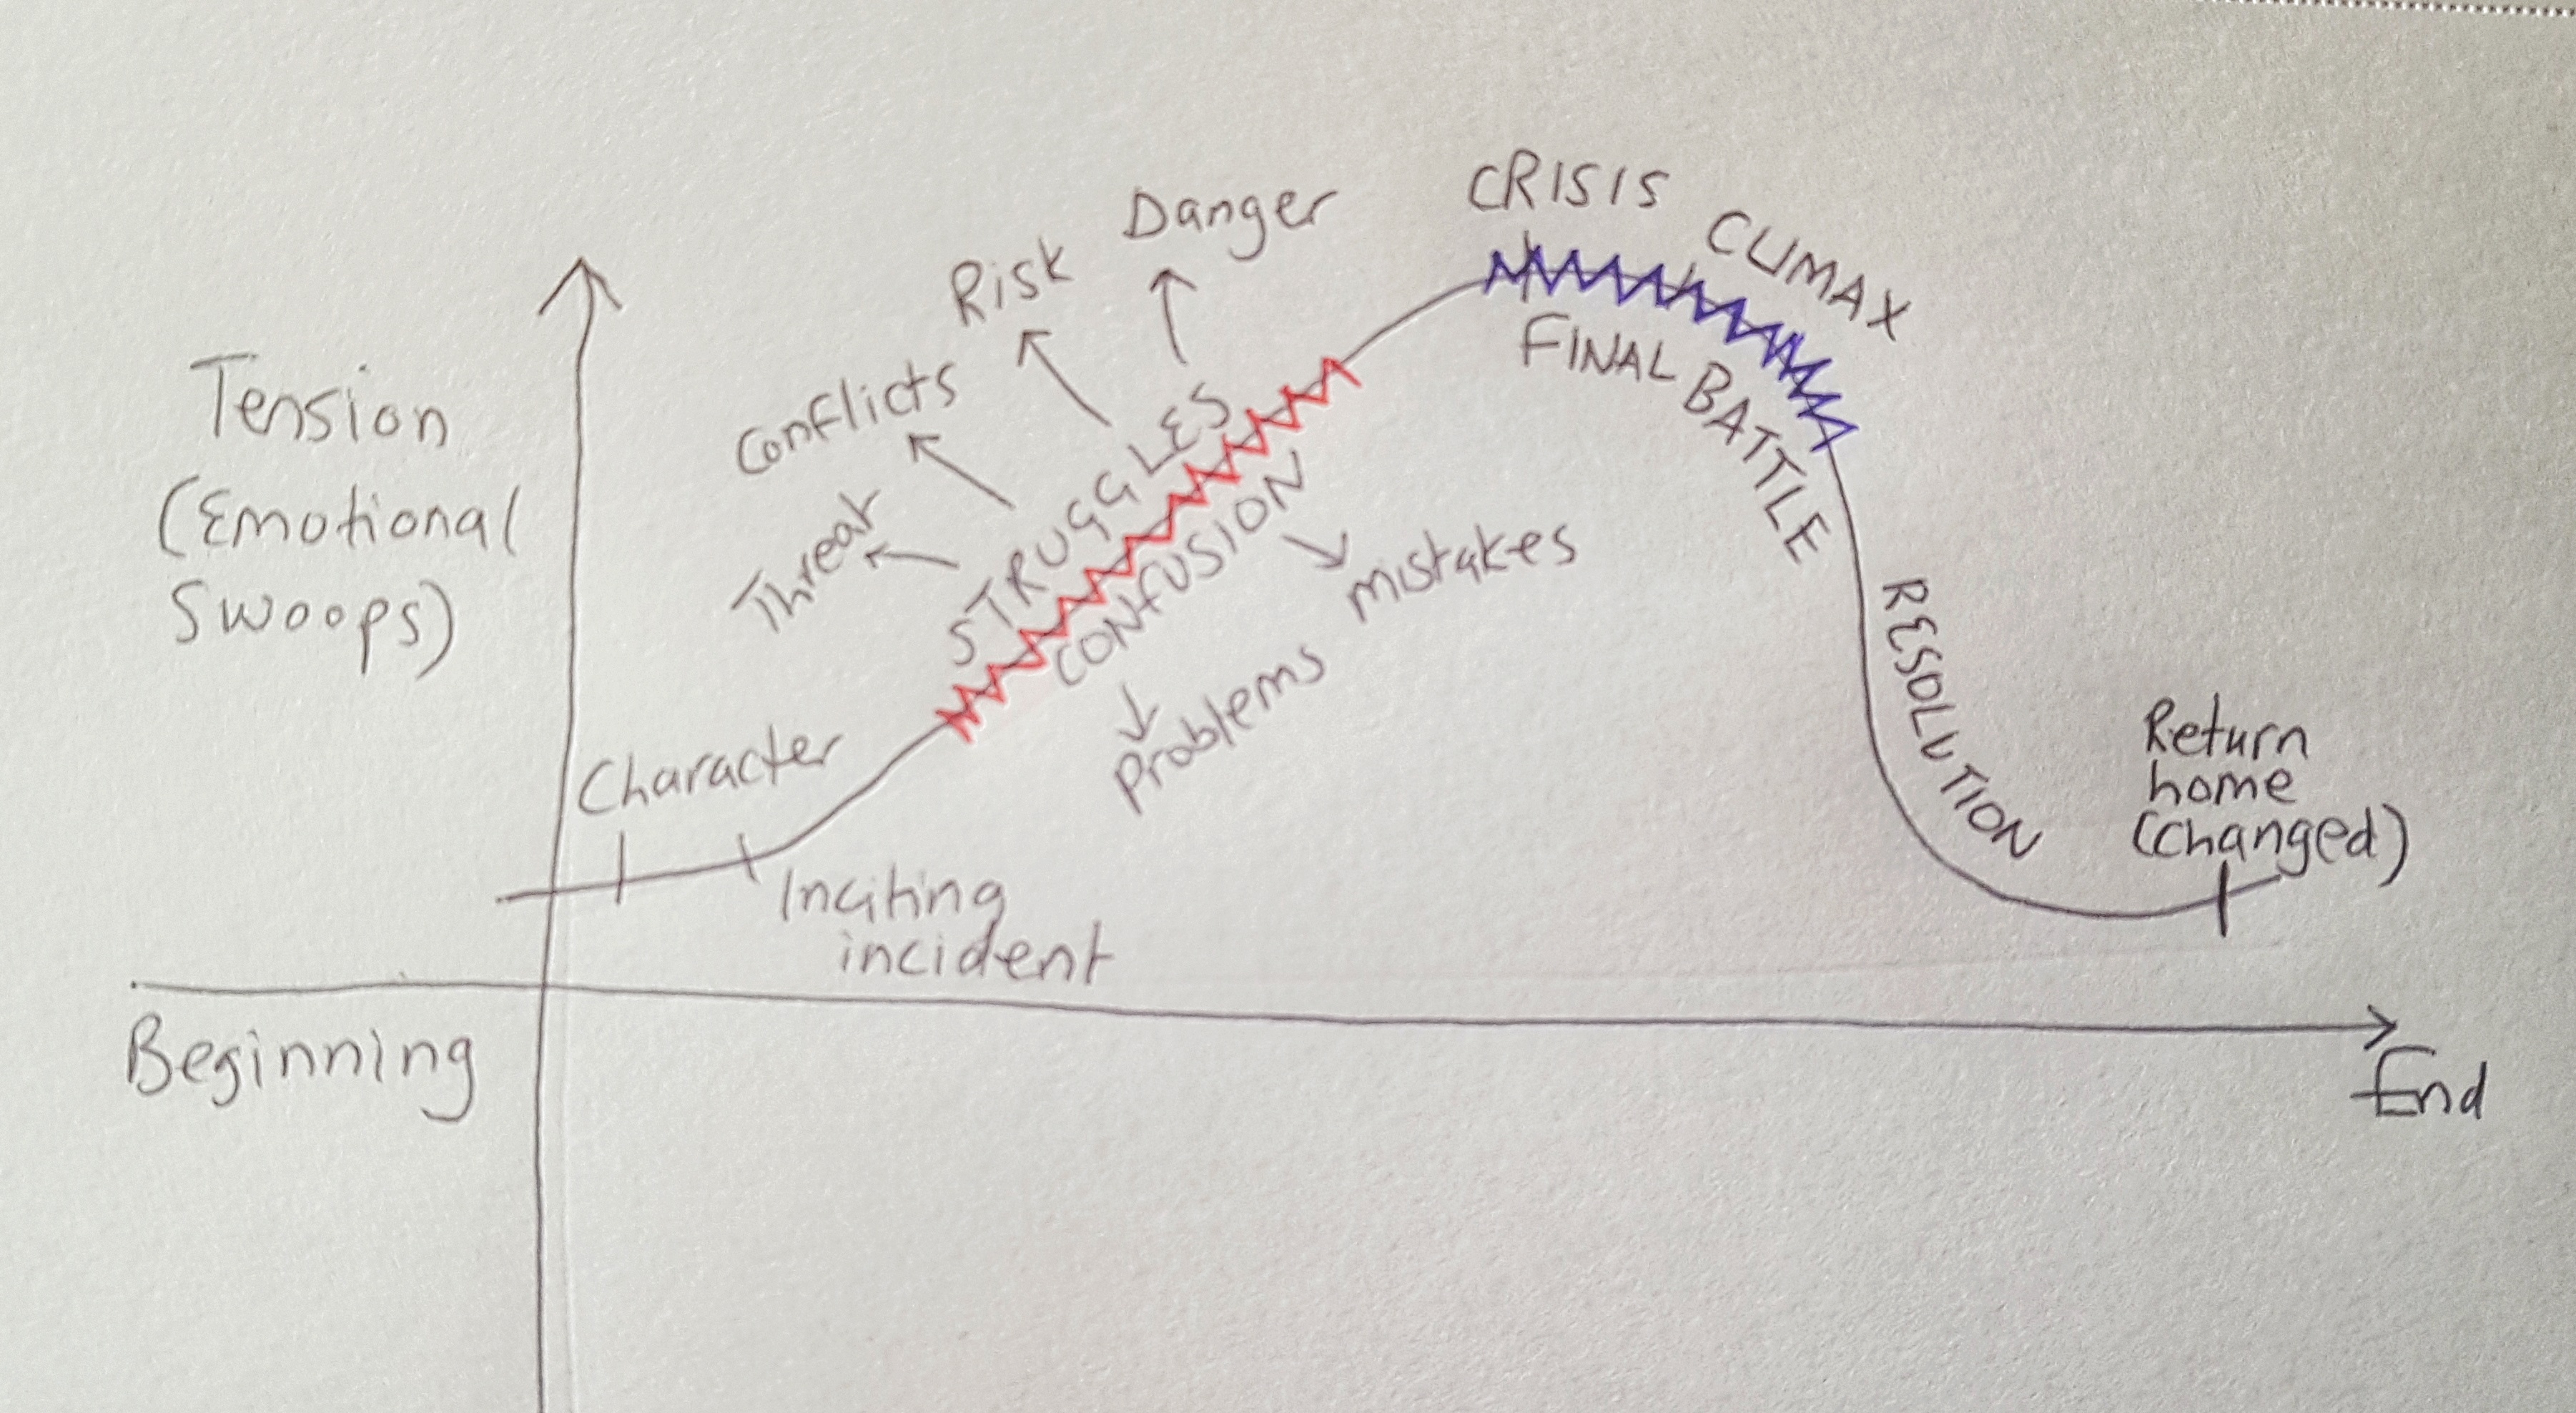 CRISIS
CLIMAX
Danger
Risk
Conflicts
Threat
STRUGGLES
CONFUSION
mistakes
Problems
FINAL BATTLE
Tension
(Emotional
Swoops)
RESOLUTION
Character
Inciting
incident
Return
home
(changed)
Beginning
End